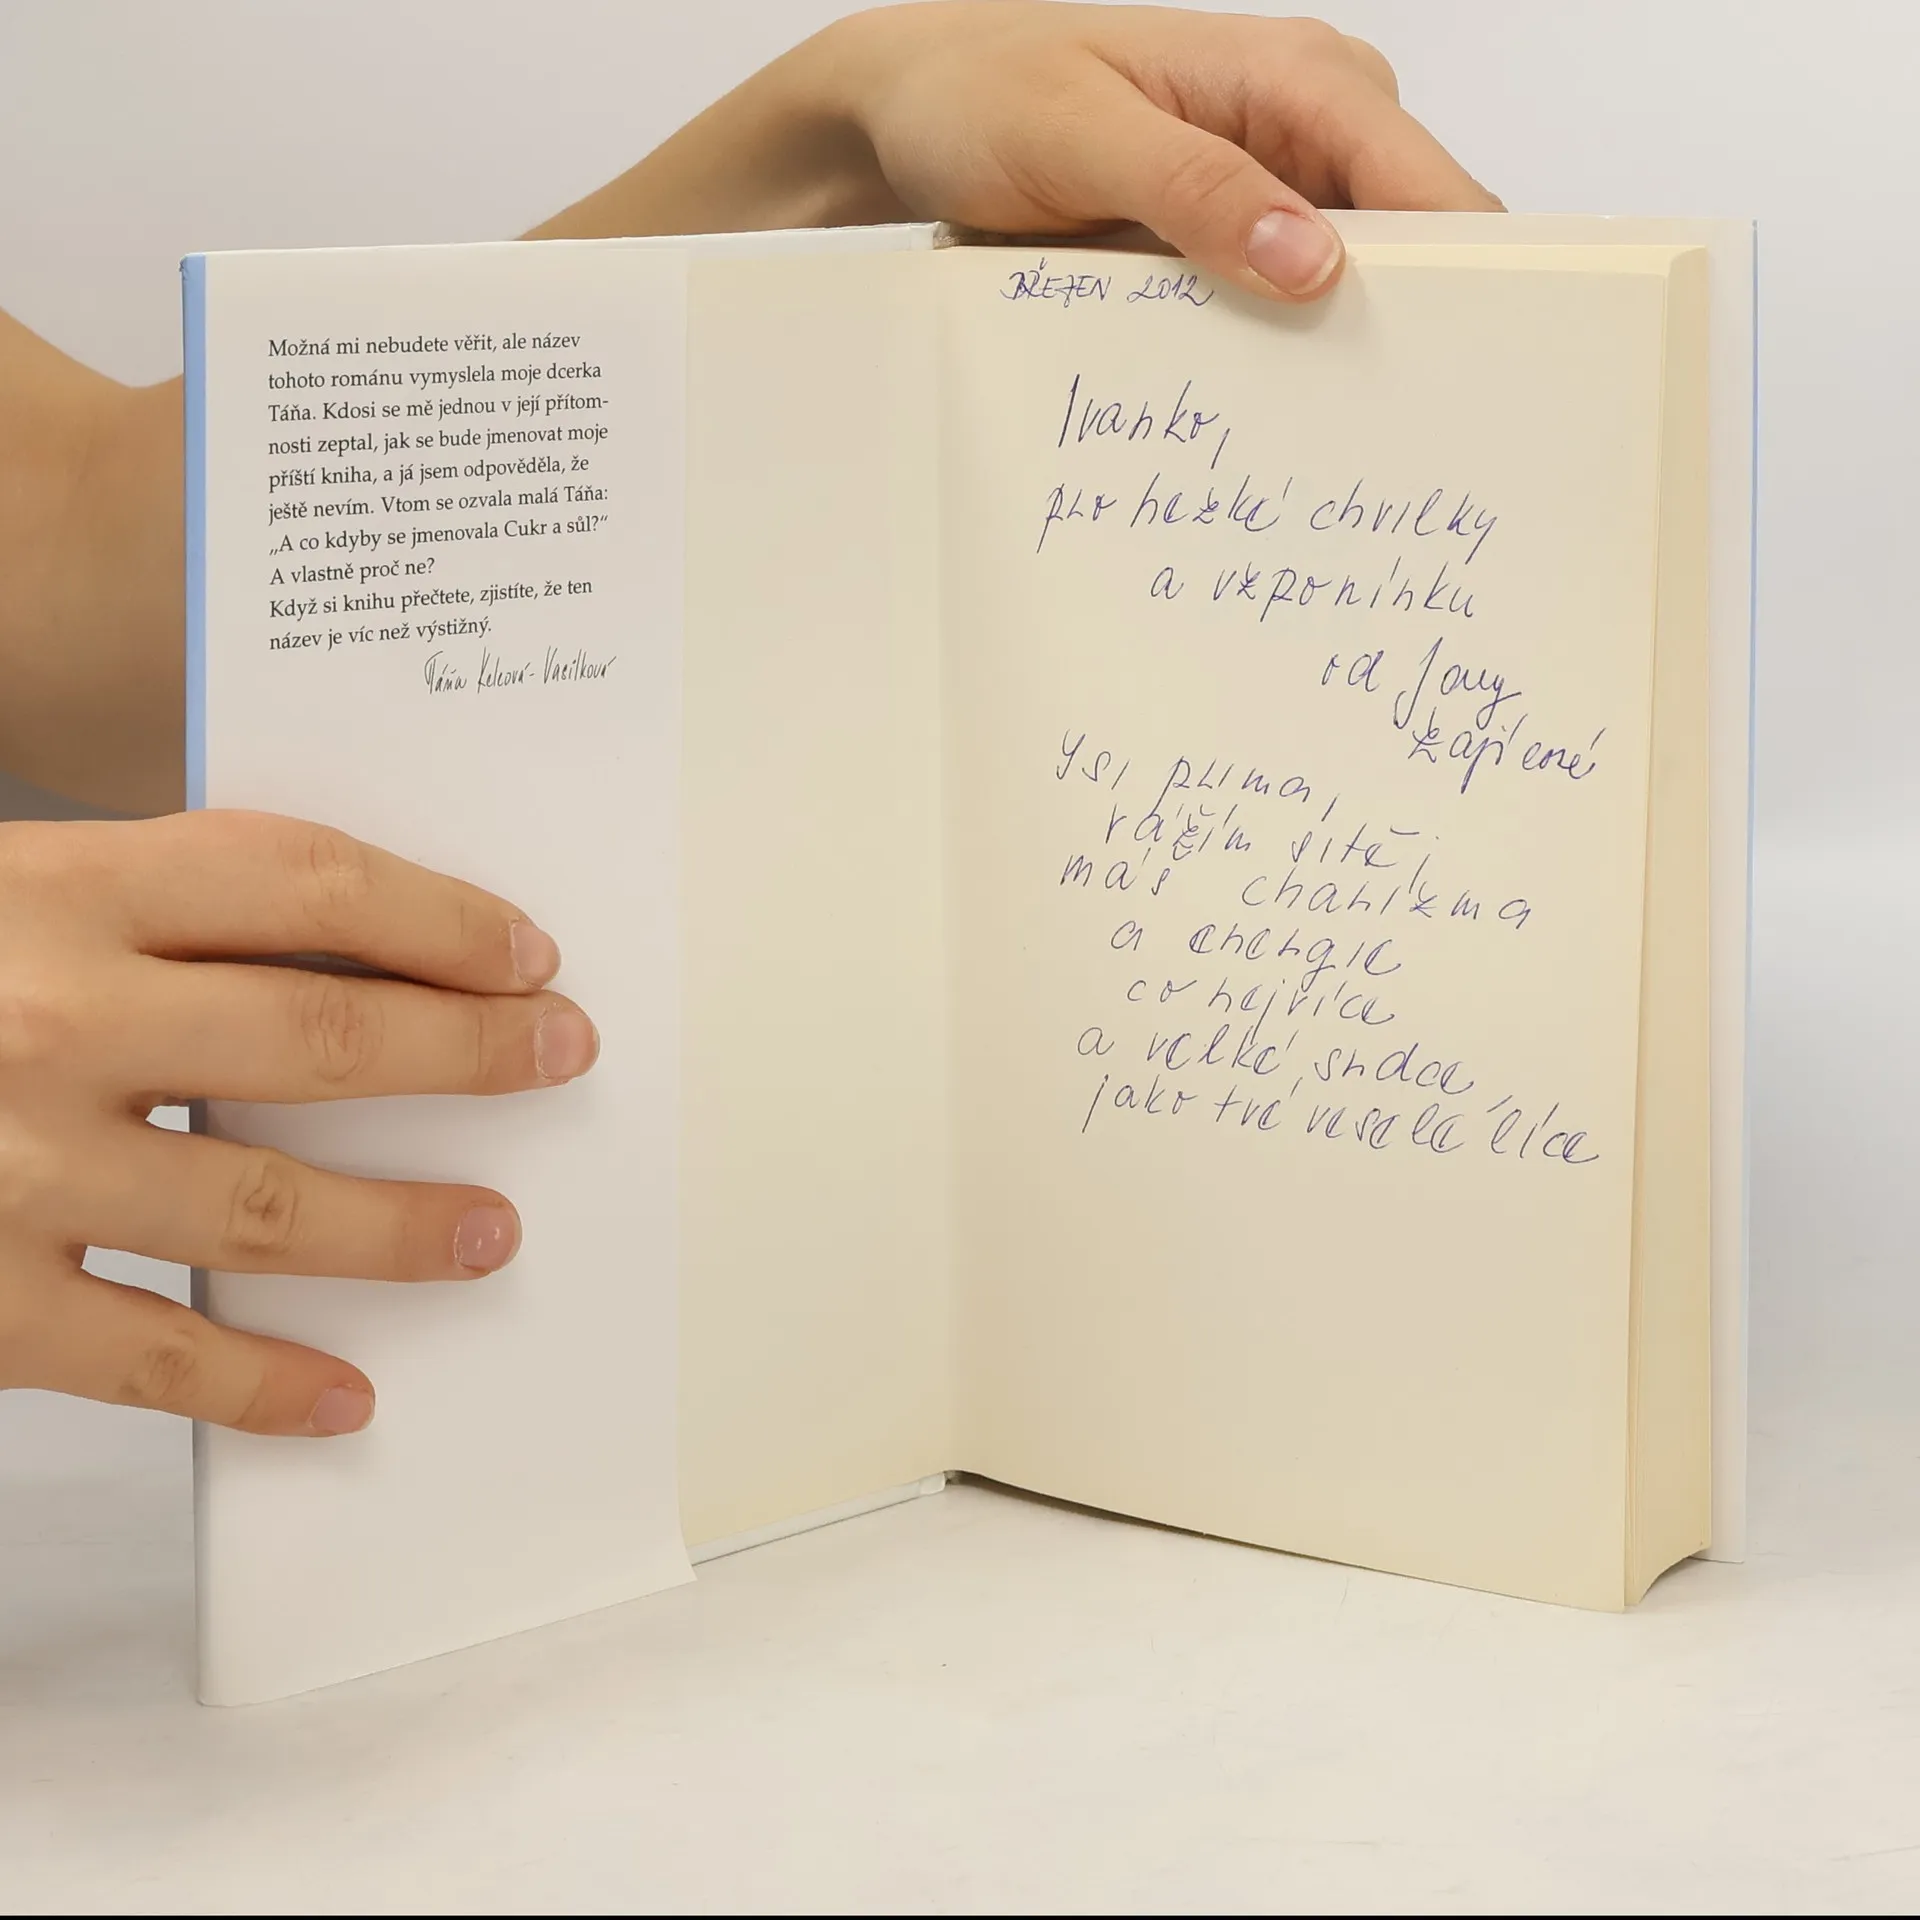 Možná mi nebudete věřit, ale název
tohoto románu vymyslela moje dcerka
Táňa. Kdosi se mě jednou v její přítom-
nosti zeptal, jak se bude jmenovat moje
příští kniha, a já jsem odpověděla, že
ještě nevím. Vtom se ozvala malá Táňa:
„A co kdyby se jmenovala Cukr a sůl?“
A vlastně proč ne?
Když si knihu přečtete, zjistíte, že ten
název je víc než výstižný.
Táňa Keleová-Vasilková
BŘEZEN 2012
Ivanko,
pro hezké chvilky
a vzpomínku
od Jany
Zajícové
Jsi prima,
vážím si tě,
máš charizma
a energie
co nejvíce
a velké srdce,
jako tvé veselé líce